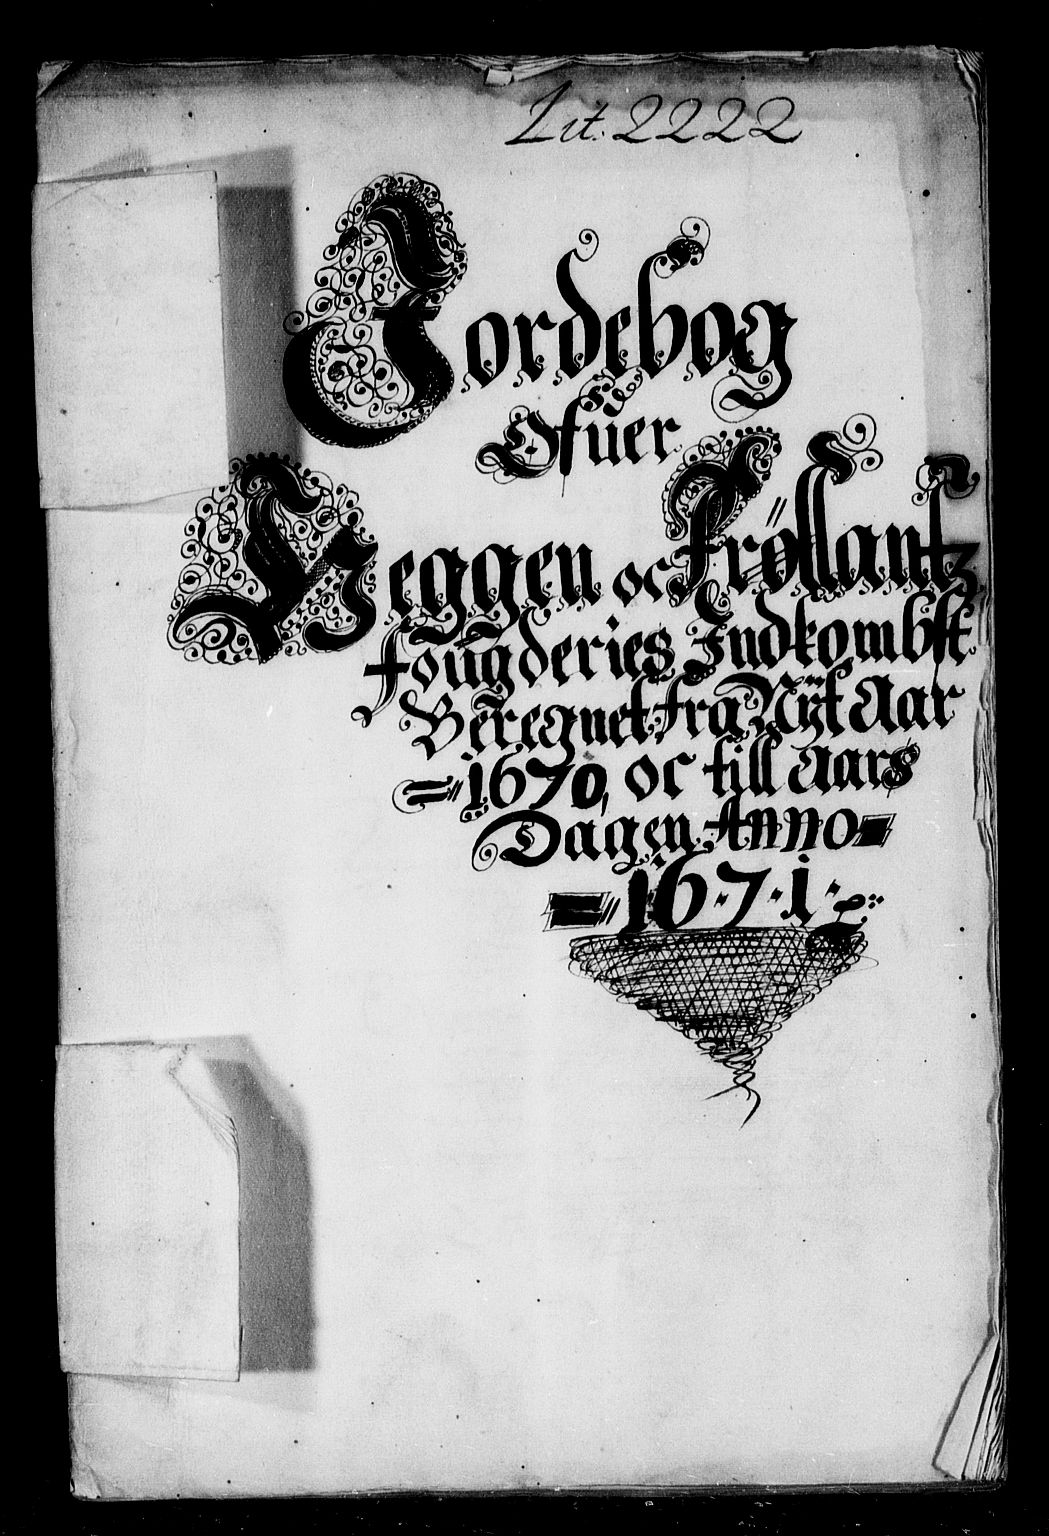 Lit: 2222
Jordebog
Ofuer
Heggen oc Frøllantz
fougderies Indkombst
Beregnet fra Nÿt Aar
1670, oc till Aars
Dagen Anno
1671